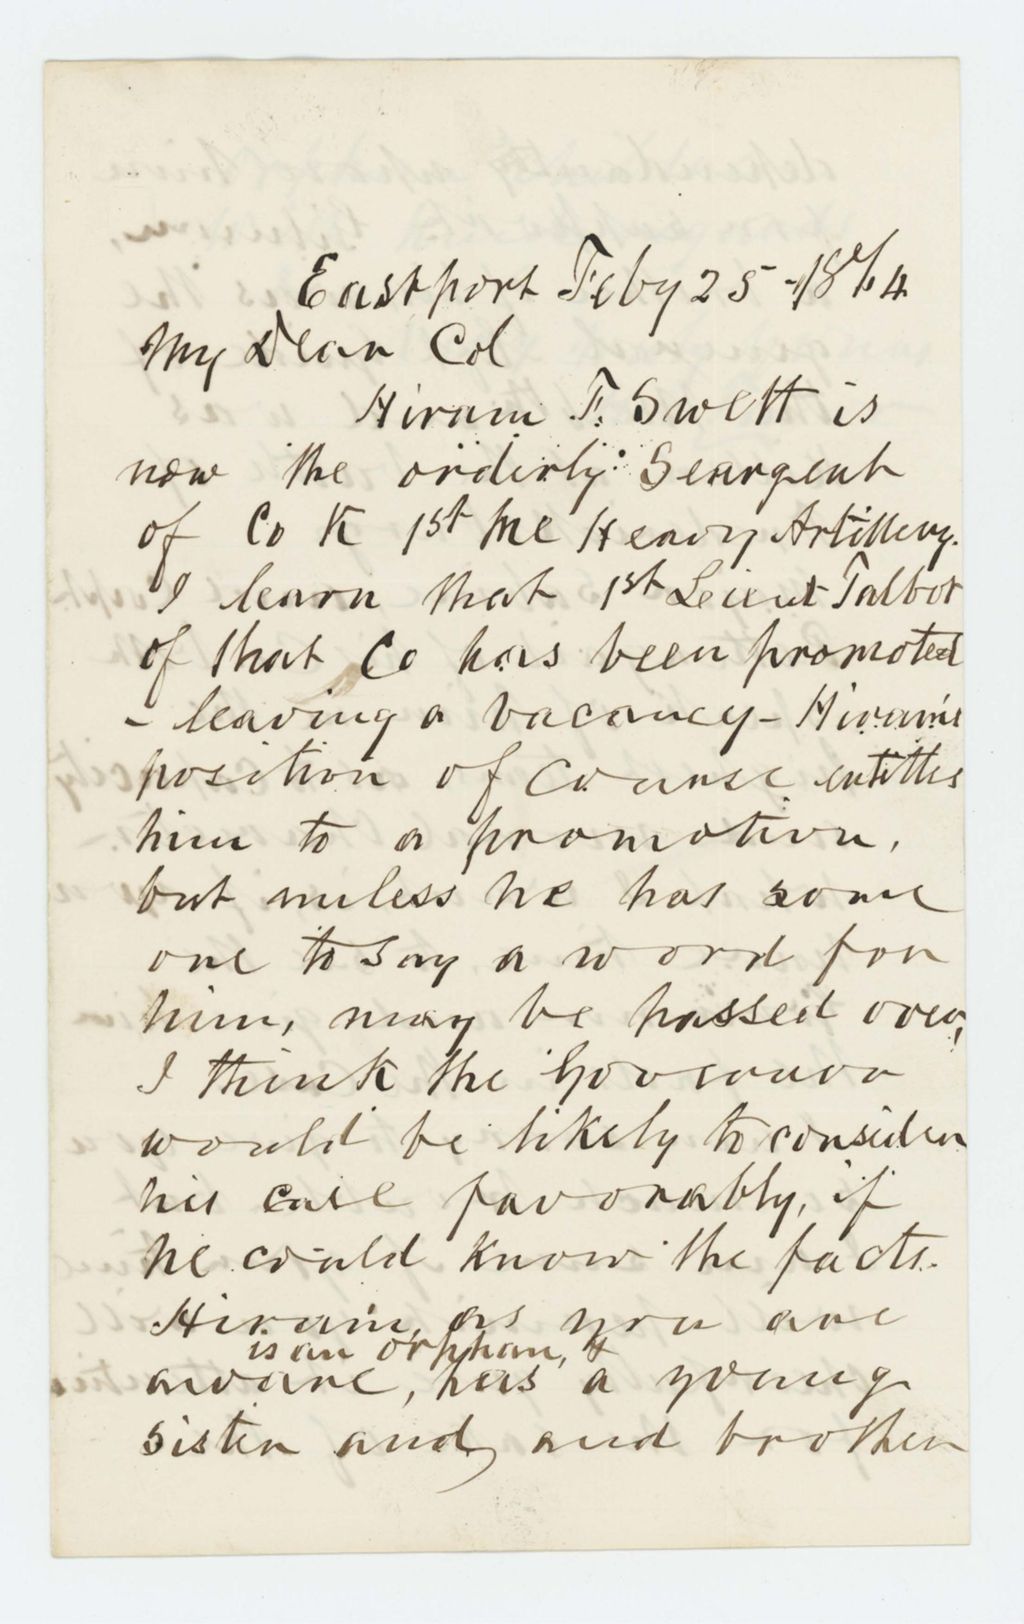 Eastport Feby 25 - 1864
My Dear Col
Hiram F. Swett is
now the orderly Seargent
of Co K 1st Me Heavy Artillery.
I learn that 1st Leieut Talbot
of that Co has been promoted
- leaving a vacancy - Hiram's
position of Course entitles
him to a promotion,
but unless he has some
one to say a word for
him, may be passed over,
I think the Governor
would be likely to consider
his case favorably, if
he could know the facts.
Hiram, as you are
is an orphan, &
aware, has a young
sister and, and brother